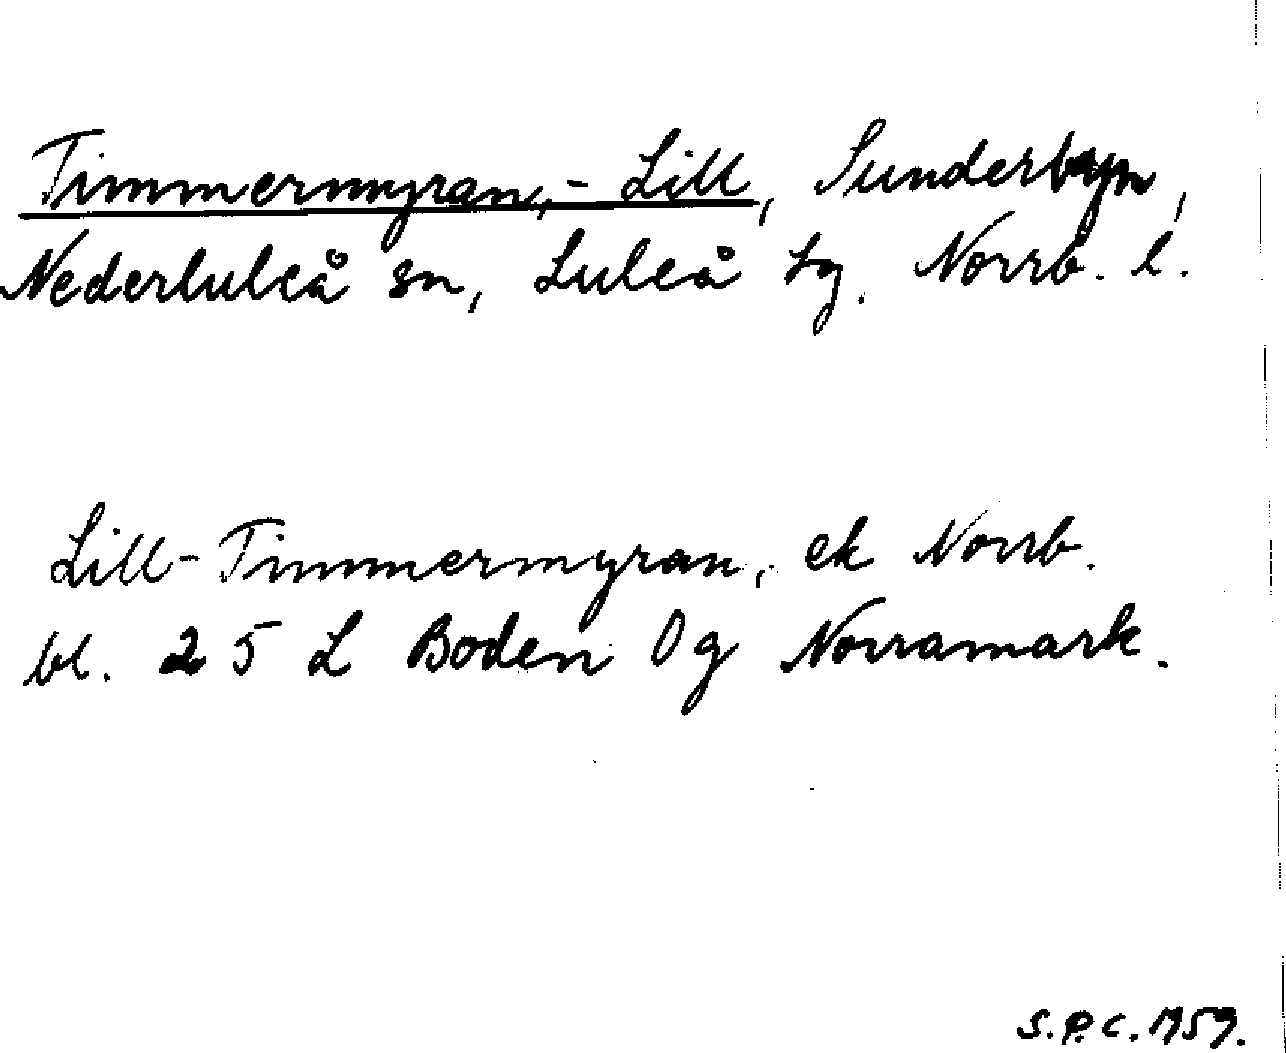 Timmermyran, - Lill, Sunderbyn,
Nederluleå sn, Luleå tg. Norrb. l.
Lill-Timmermyran, ek Norrb.
bl. 25 L Boden Og Norramark.
S.P.C. 1959.